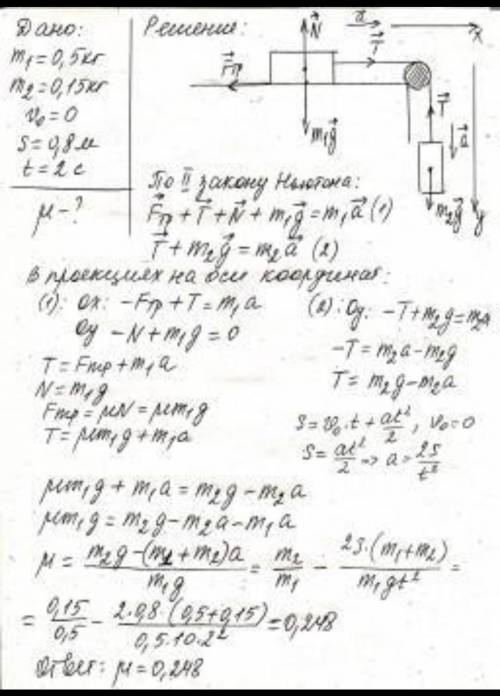 Дано:
m₁=0,5кг
m₂=0,15кг
v₀=0
S=0,8м
t=2с
μ-?
Решение:
N⃗
a⃗
x
T⃗
F⃗тр
m₁g⃗
T⃗
a⃗
m₂g⃗
y
По II закону Ньютона:
F⃗тр+T⃗+N⃗+m₁g⃗=m₁a⃗ (1)
T⃗+m₂g⃗=m₂a⃗ (2)
В проекциях на оси координат:
(1): Ox: -Fтр+T=m₁a
Oy -N+m₁g=0
T=Fтр+m₁a
N=m₁g
Fтр=μN=μm₁g
T=μm₁g+m₁a
(2): Oy: -T+m₂g=m₂a
-T=m₂a-m₂g
T=m₂g-m₂a
S=v₀·t+at²/2, v₀=0
S=at²/2 => a=2S/t²
μm₁g+m₁a=m₂g-m₂a
μm₁g=m₂g-m₂a-m₁a
μ=(m₂g-(m₂+m₂)a)/(m₁g)=m₂/m₁-2S·(m₁+m₂)/(m₁gt²)=
=0,15/0,5-2·0,8·(0,5+0,15)/(0,5·10·2²)=0,248
Ответ: μ=0,248